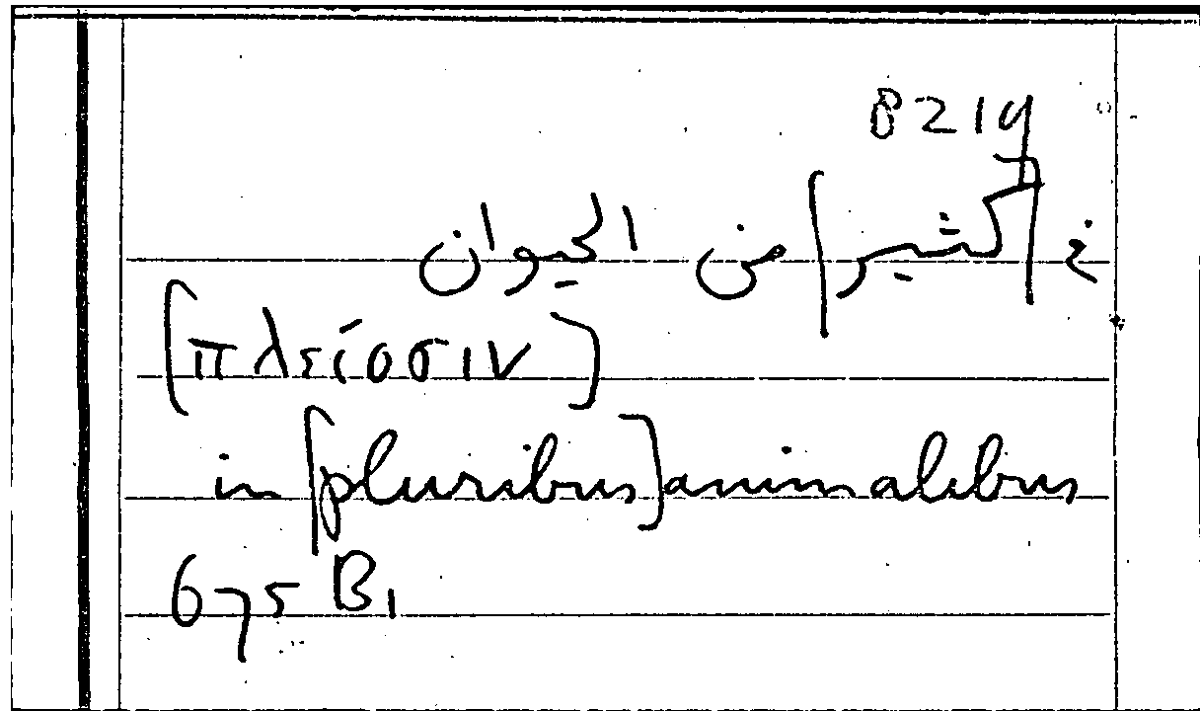 8219
في [كثير] من الحيوان
[πλείοσιν]
in [pluribus] animalibus
675 B1